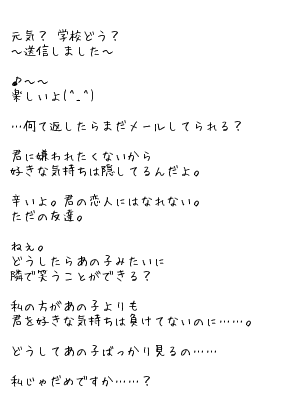 元気？ 学校どう？
〜送信しました〜
♪〜〜
楽しいよ(^_^)
…何て返したらまだメールしてられる？
君に嫌われたくないから
好きな気持ちは隠してるんだよ。
辛いよ。君の恋人にはなれない。
ただの友達。
ねぇ。
どうしたらあの子みたいに
隣で笑うことができる？
私の方があの子よりも
君を好きな気持ちは負けてないのに……。
どうしてあの子ばっかり見るの……
私じゃだめですか……？